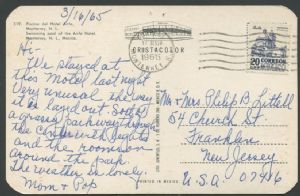 3/16/65
119. Piscina del Hotel Anfa,
Monterrey, N. L.
Swimming pool of the Anfa Hotel,
Monterrey, N. L., Mexico.
Hi-
We stayed at
this motel last night
Very unusual the way
it is layed out so that
a grass parkway through
the center with lights
and the rooms on
around the park.
The weather is lovely.
Mom & Pop
CRISTACOLOR
1965
MONTERREY, N.L.
20 CORREOS
Mr & Mrs Philip B. Littell
54 Church St
Franklin
New Jersey
U.S.A. 07416
PRINTED IN MEXICO